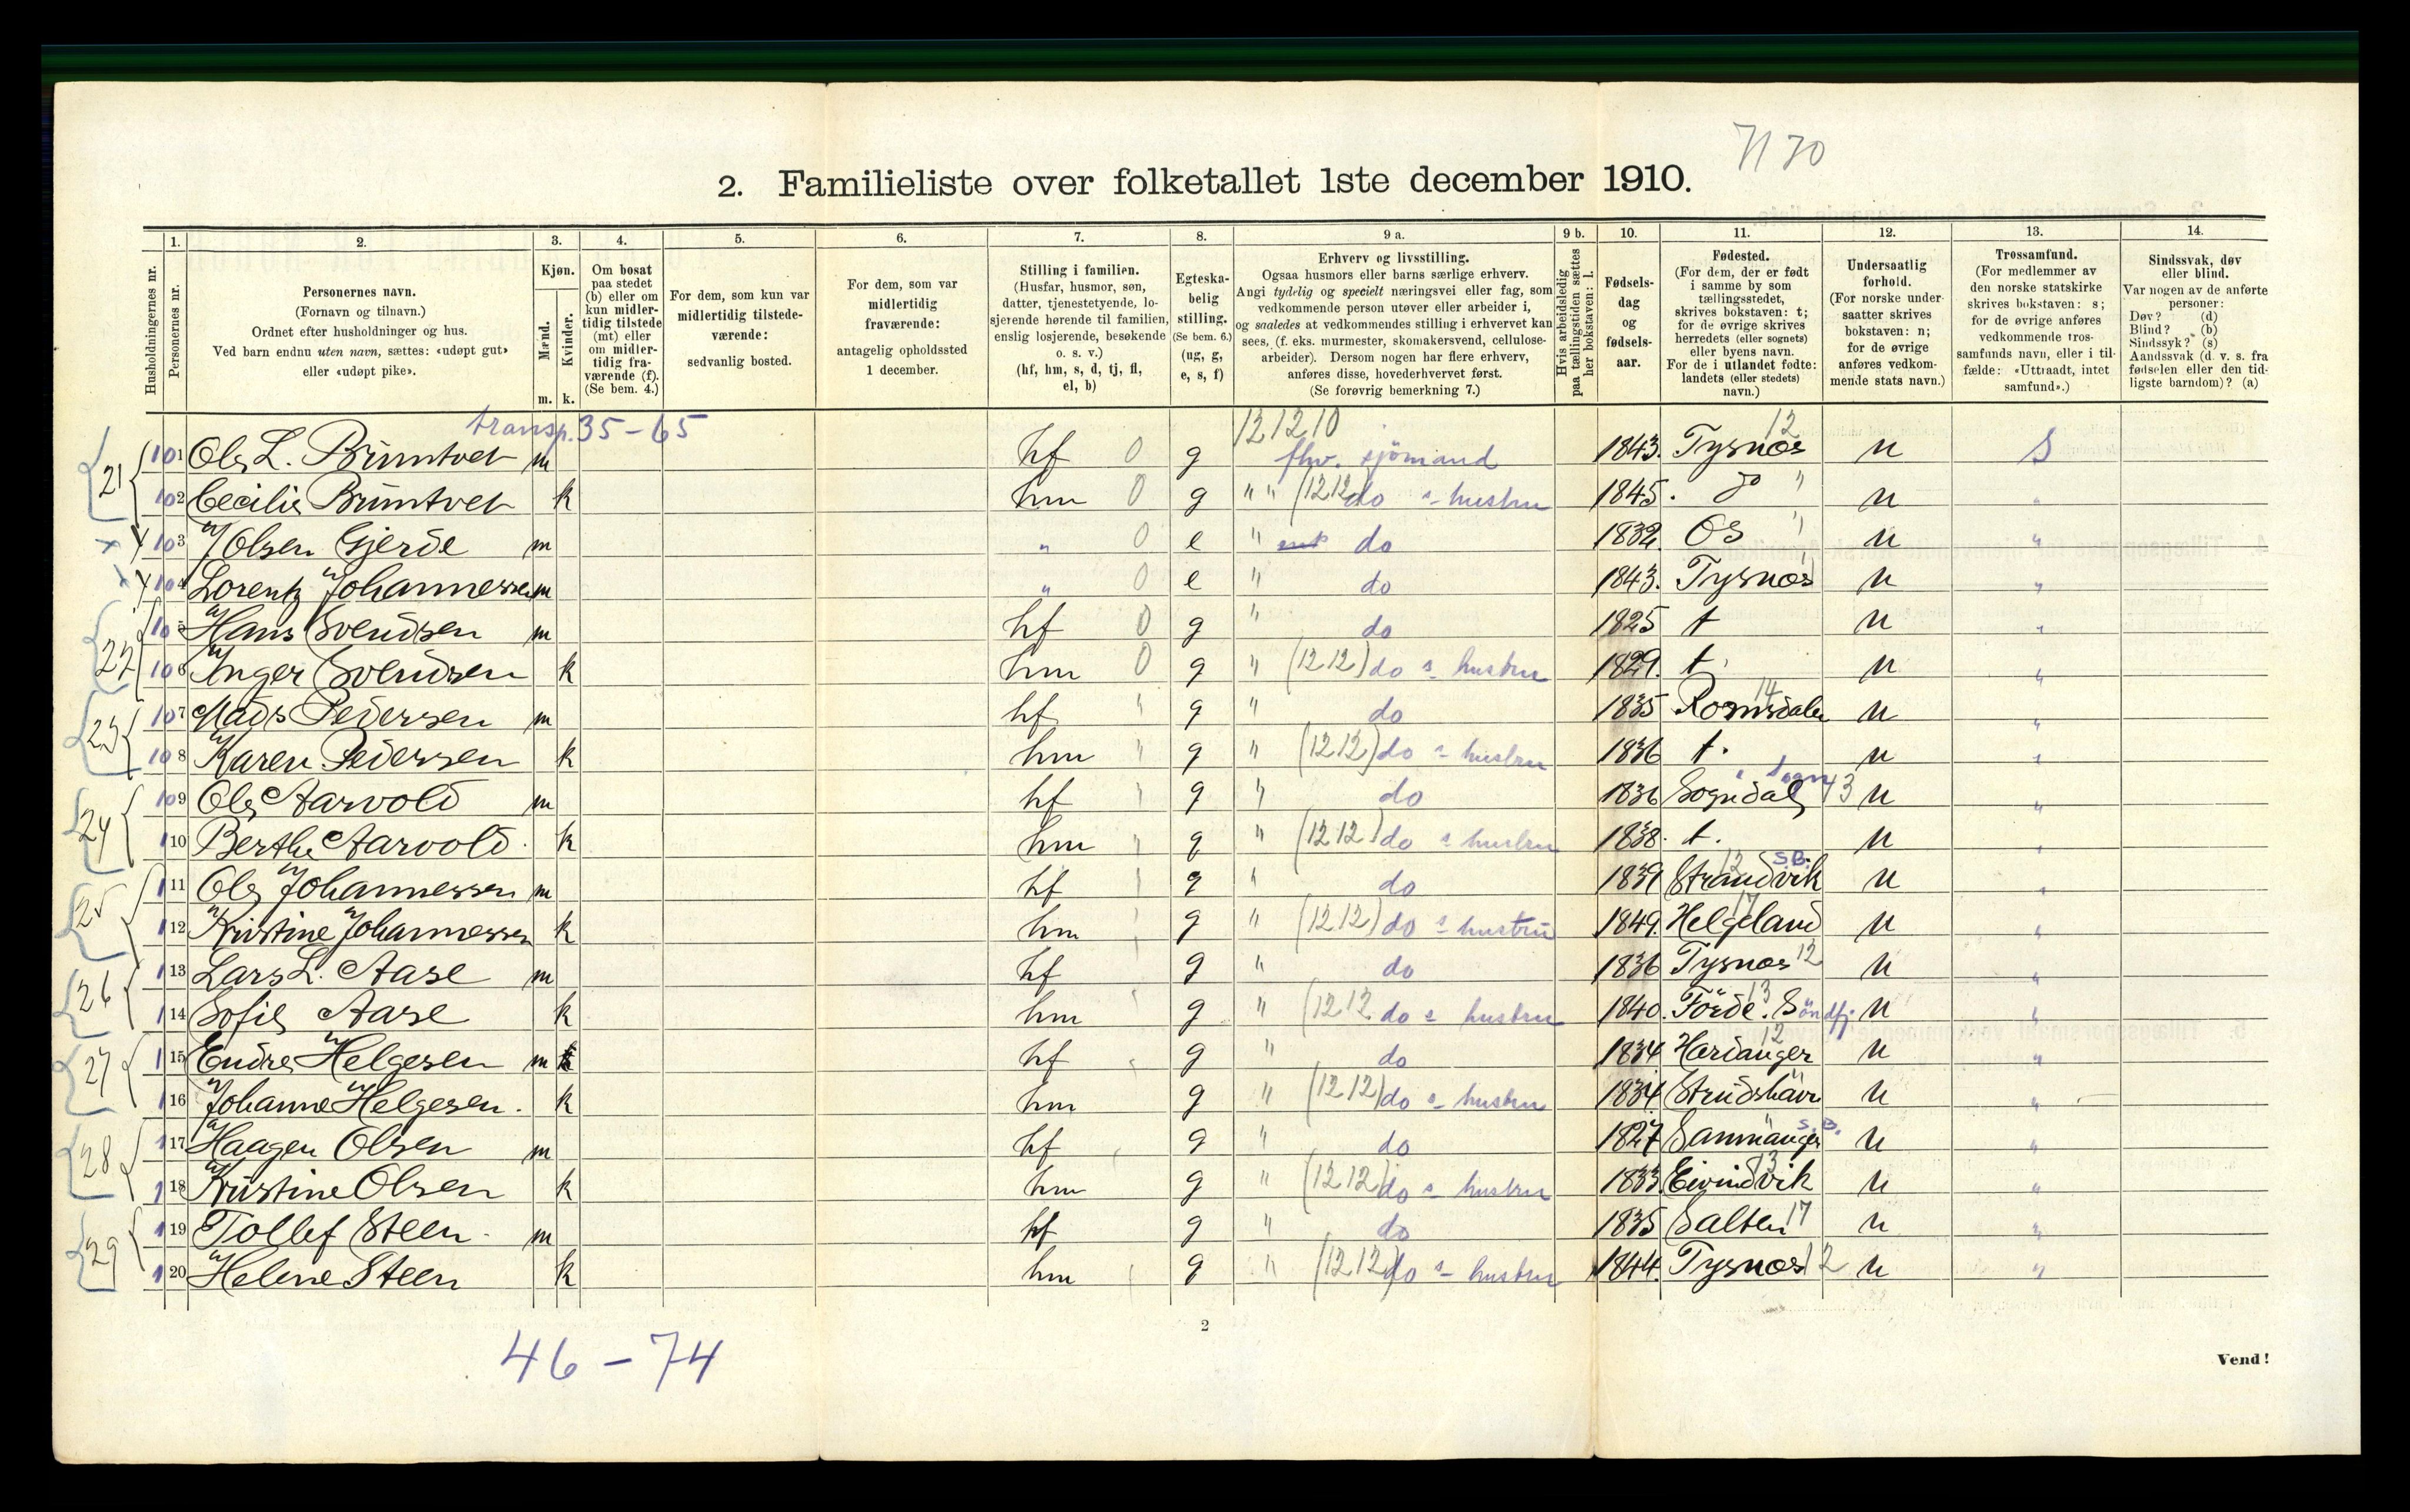 7130
2. Familieliste over folketallet 1ste december 1910.
Husholdningernes nr.
1.
Personernes nr.
2.
Personernes navn.
(Fornavn og tilnavn.)
Ordnet efter husholdninger og hus.
Ved barn endnu uten navn, sættes: «udøpt gut»
eller «udøpt pike».
3.
Kjøn.
Mænd.
Kvinder.
m. k.
4.
Om bosat
paa stedet
(b) eller om
kun midler-
tidig tilstede
(mt) eller
om midler-
tidig fra-
værende (f).
(Se bem. 4.)
5.
For dem, som kun var
midlertidig tilstede-
værende:
sedvanlig bosted.
6.
For dem, som var
midlertidig
fraværende:
antagelig opholdssted
1 december.
7.
Stilling i familien.
(Husfar, husmor, søn,
datter, tjenestetyende, lo-
sjerende hørende til familien,
enslig losjerende, besøkende
o. s. v.)
(hf, hm, s, d, tj, fl,
el, b)
8.
Egteska-
belig
stilling.
(Se bem. 6.)
(ug, g,
e, s, f)
9 a.
Erhverv og livsstilling.
Ogsaa husmors eller barns særlige erhverv.
Angi tydelig og specielt næringsvei eller fag, som
vedkommende person utøver eller arbeider i,
og saaledes at vedkommendes stilling i erhvervet kan
sees, (f. eks. murmester, skomakersvend, cellulose-
arbeider). Dersom nogen har flere erhverv,
anføres disse, hovederhvervet først.
(Se forøvrig bemerkning 7.)
9 b.
Hvis arbeidsledig
paa tællingstiden sættes
her bokstaven: l.
10.
Fødsels-
dag
og
fødsels-
aar.
11.
Fødested.
(For dem, der er født
i samme by som
tællingsstedet,
skrives bokstaven: t;
for de øvrige skrives
herredets (eller sognets)
eller byens navn.
For de i utlandet fødte:
landets (eller stedets)
navn.)
12.
Undersaatlig
forhold.
(For norske under-
saatter skrives
bokstaven: n;
for de øvrige
anføres vedkom-
mende stats navn.)
13.
Trossamfund.
(For medlemmer av
den norske statskirke
skrives bokstaven: s;
for de øvrige anføres
vedkommende tros-
samfunds navn, eller i til-
fælde: «Uttraadt, intet
samfund».)
14.
Sindssvak, døv
eller blind.
Var nogen av de anførte
personer:
Døv? (d)
Blind? (b)
Sindssyk? (s)
Aandssvak (d. v. s. fra
fødselen eller den tid-
ligste barndom)? (a)
transp. 35-65 121210 12
21 101 Ole L. Brüntvet m hf 0 g fhv. sjömand 1843. Tysnæs n S
102 Cecilie Brüntvet k hm 0 g " " (1212 do s hustru 1845. do " n "
x 103 J Olsen Gjerde m " 0 e " do 1832. Os " n "
x 104 Lorentz Johannessen m " 0 e " do 1843. Tysnæs n "
22 105 Hans Svendsen m hf 0 g " do 1825 t n "
106 Inger Svendsen k hm 0 g " (1212) do s hustru 1829. t. n "
23 107 Mads Pedersen m hf " g " do 1835 Romsdalen 14 n "
108 Karen Pedersen k hm " g " (1212) do s hustru 1836 t. n "
24 109 Ole Aarvold m hf " g " do 1836 Sogndal i Sogn 13 n "
110 Berthe Aarvold. k hm " g " (1212) do s hustru 1838. t. n "
25 111 Ole Johannessen m hf g " do 1839 Strandvik 12 S.B. n "
112 Kristine Johannessen k hm g " (1212) do s hustru 1849. Helgeland 17 n "
26 113 Lars L. Aase m hf g " do 1836 Tysnæs 12 n "
114 Sofie Aase k hm g " (1212 do s hustru 1840. Förde. Söndfj. 13 n "
27 115 Endre Helgesen m hf g " do 1834 Hardanger 12 n "
116 Johanne Helgesen. k hm g " (1212) do s hustru 1834. Strudshavn n "
28 117 Haagen Olsen m hf g " do 1827 Samnanger S.B. n "
118 Kristine Olsen k hm g " (1212) do s hustru 1833. Eivindvik 13 n "
29 119 Tollef Steen m hf g " do 1835 Salten 17 n "
120 Helene Steen k hm g " (1212) do s hustru 1844. Tysnæs 12 n "
2
46-74
Vend!